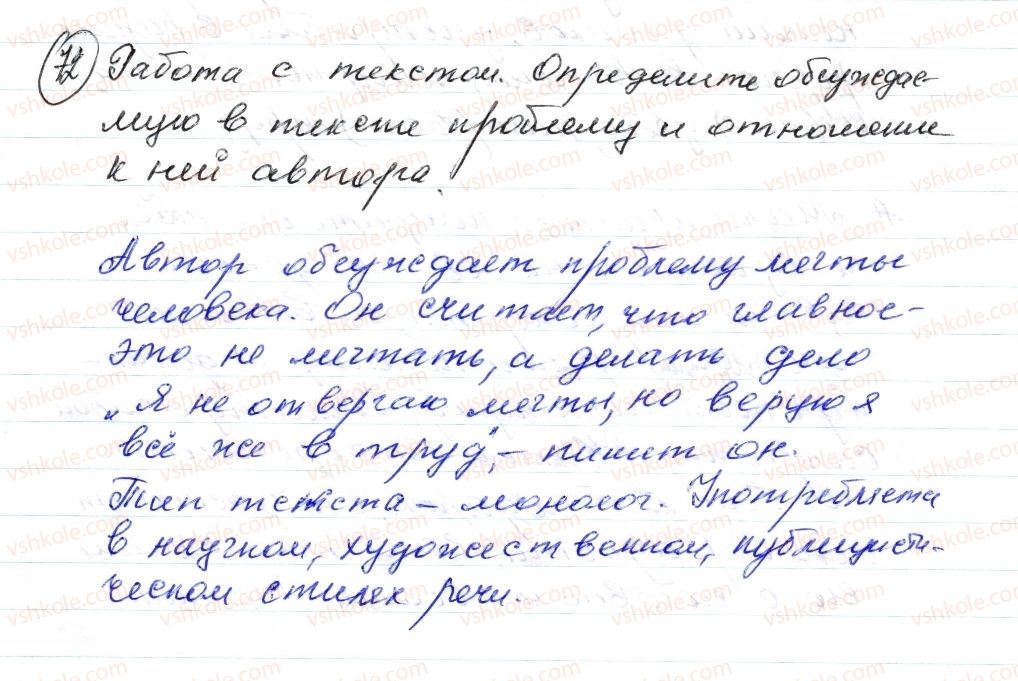 72 Работа с текстом. Определите обсуждае-
мую в тексте проблему и отношение
к ней автора.
Автор обсуждает проблему мечты
человека. Он считает, что главное-
это не мечтать, а делать дело
„Я не отвергаю мечты, но верую я
всё же в труд", - пишит он.
Тип текста - монолог. Употребляется
в научном, художественном, публицисти-
ческом стилех речи.